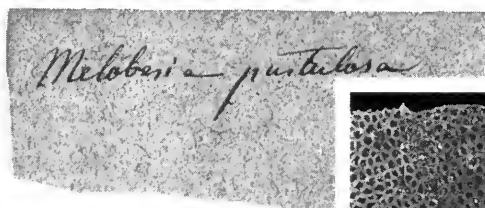 Melobesia pustulosa